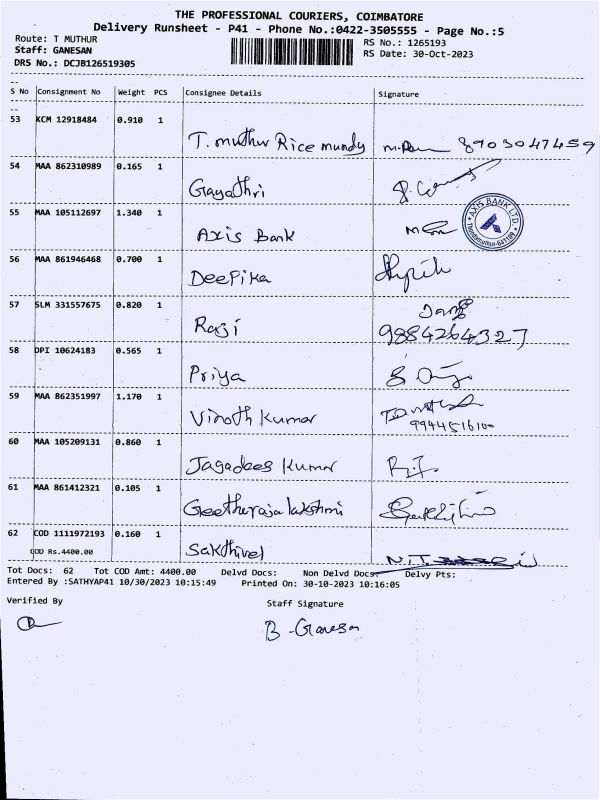 THE PROFESSIONAL COURIERS, COIMBATORE
Delivery Runsheet - P41 - Phone No.:0422-3505555 - Page No.:5
Route: T MUTHUR
RS No.: 1265193
Staff: GANESAN
RS Date: 30-Oct-2023
DRS No.: DCJB126519305
S No Consignment No Weight PCS Consignee Details Signature
53 KCM 12918484 0.910 1
T. muthur Rice mundy 8903047459
54 MAA 862310989 0.165 1
Gayathri
55 MAA 105112697 1.340 1
Axis Bank AXIS BANK LTD.
56 MAA 861946468 0.700 1
DeePika
57 SLM 331557675 0.820 1
Raji 9884264327
58 DPI 10624183 0.565 1
Priya
59 MAA 862351997 1.170 1
Vinoth Kumar 9944516100
60 MAA 105209131 0.860 1
Jagadees Kumar
61 MAA 861412321 0.105 1
Geetharajalakshmi
62 COD 1111972193 0.160 1
COD Rs.4400.00 Sakthivel
Tot Docs: 62 Tot COD Amt: 4400.00 Delvd Docs: Non Delvd Docs: Delvy Pts:
Entered By :SATHYAP41 10/30/2023 10:15:49 Printed On: 30-10-2023 10:16:05
Verified By Staff Signature
B. Ganesan